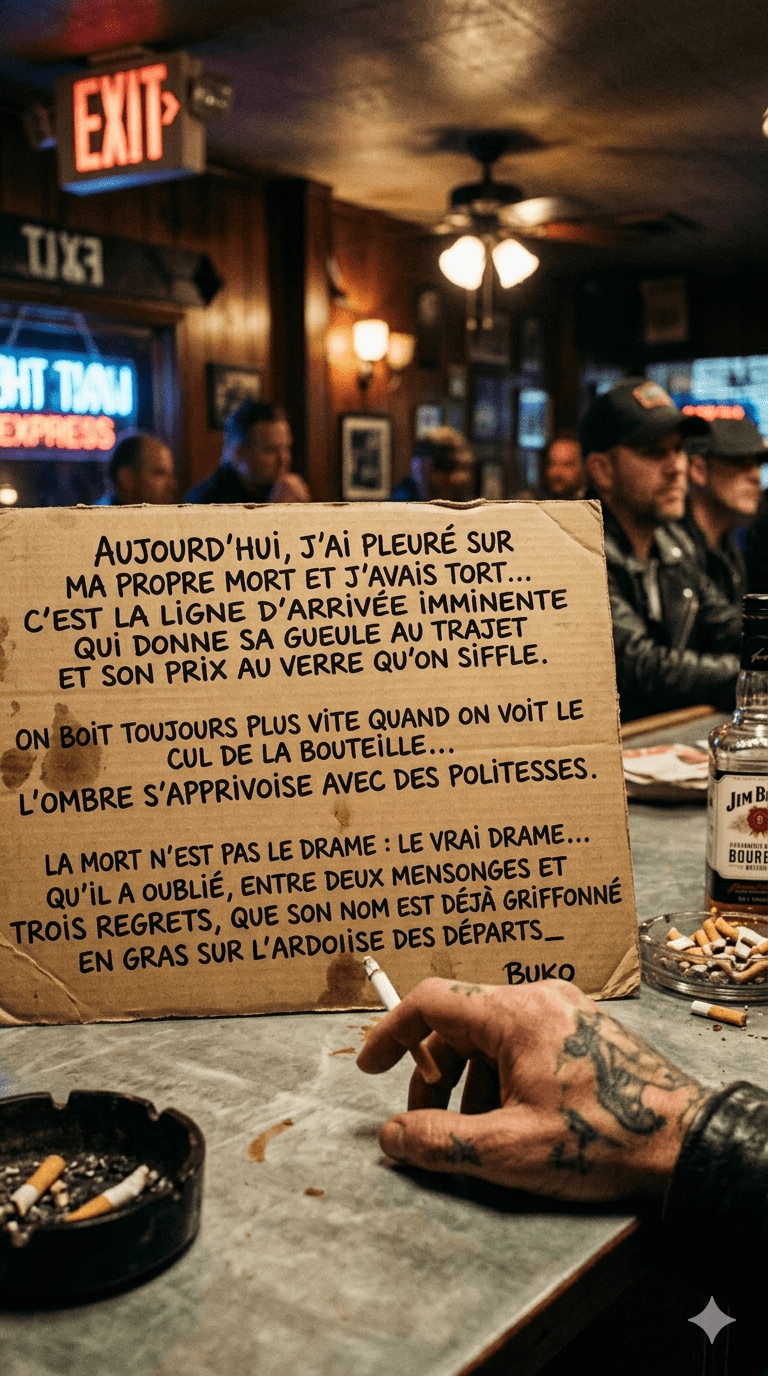 EXIT
EXIT
HT TINU
EXPRESS
AUJOURD'HUI, J'AI PLEURÉ SUR
MA PROPRE MORT ET J'AVAIS TORT...
C'EST LA LIGNE D'ARRIVÉE IMMINENTE
QUI DONNE SA GUEULE AU TRAJET
ET SON PRIX AU VERRE QU'ON SIFFLE.
ON BOIT TOUJOURS PLUS VITE QUAND ON VOIT LE
CUL DE LA BOUTEILLE...
L'OMBRE S'APPRIVOISE AVEC DES POLITESSES.
LA MORT N'EST PAS LE DRAME : LE VRAI DRAME...
QU'IL A OUBLIÉ, ENTRE DEUX MENSONGES ET
TROIS REGRETS, QUE SON NOM EST DÉJÀ GRIFFONNÉ
EN GRAS SUR L'ARDOIISE DES DÉPARTS_
BUKO
JIM B
BOURB